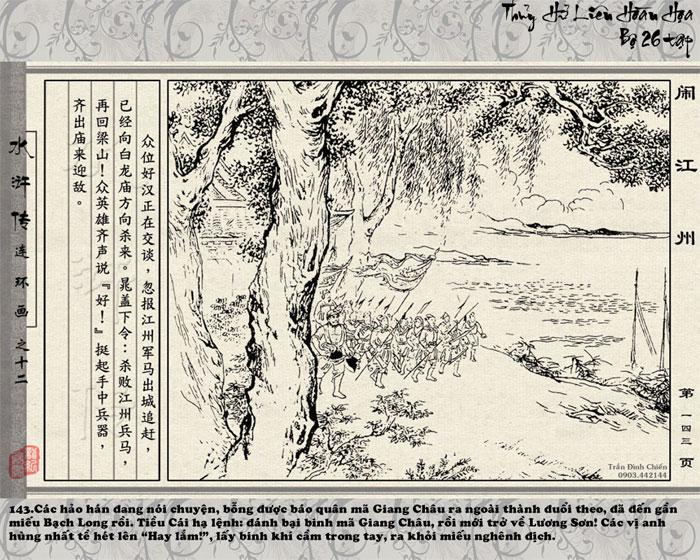 Thủy Hử Liên Hoàn Họa
Bộ 26 tập
闹江州
第一四三页
众位好汉正在交谈，忽报江州军马出城追赶，
已经向白龙庙方向杀来。晁盖下令：杀败江州兵马，
再回梁山！众英雄齐声说『好！』挺起手中兵器，
齐出庙来迎敌。
水浒传连环画之十二
Trần Đình Chiến
0903.442144
143.Các hảo hán đang nói chuyện, bỗng được báo quân mã Giang Châu ra ngoài thành đuổi theo, đã đến gần
miếu Bạch Long rồi. Tiều Cái hạ lệnh: đánh bại binh mã Giang Châu, rồi mới trở về Lương Sơn! Các vị anh
hùng nhất tề hét lên “Hay lắm!”, lấy binh khí cầm trong tay, ra khỏi miếu nghênh địch.